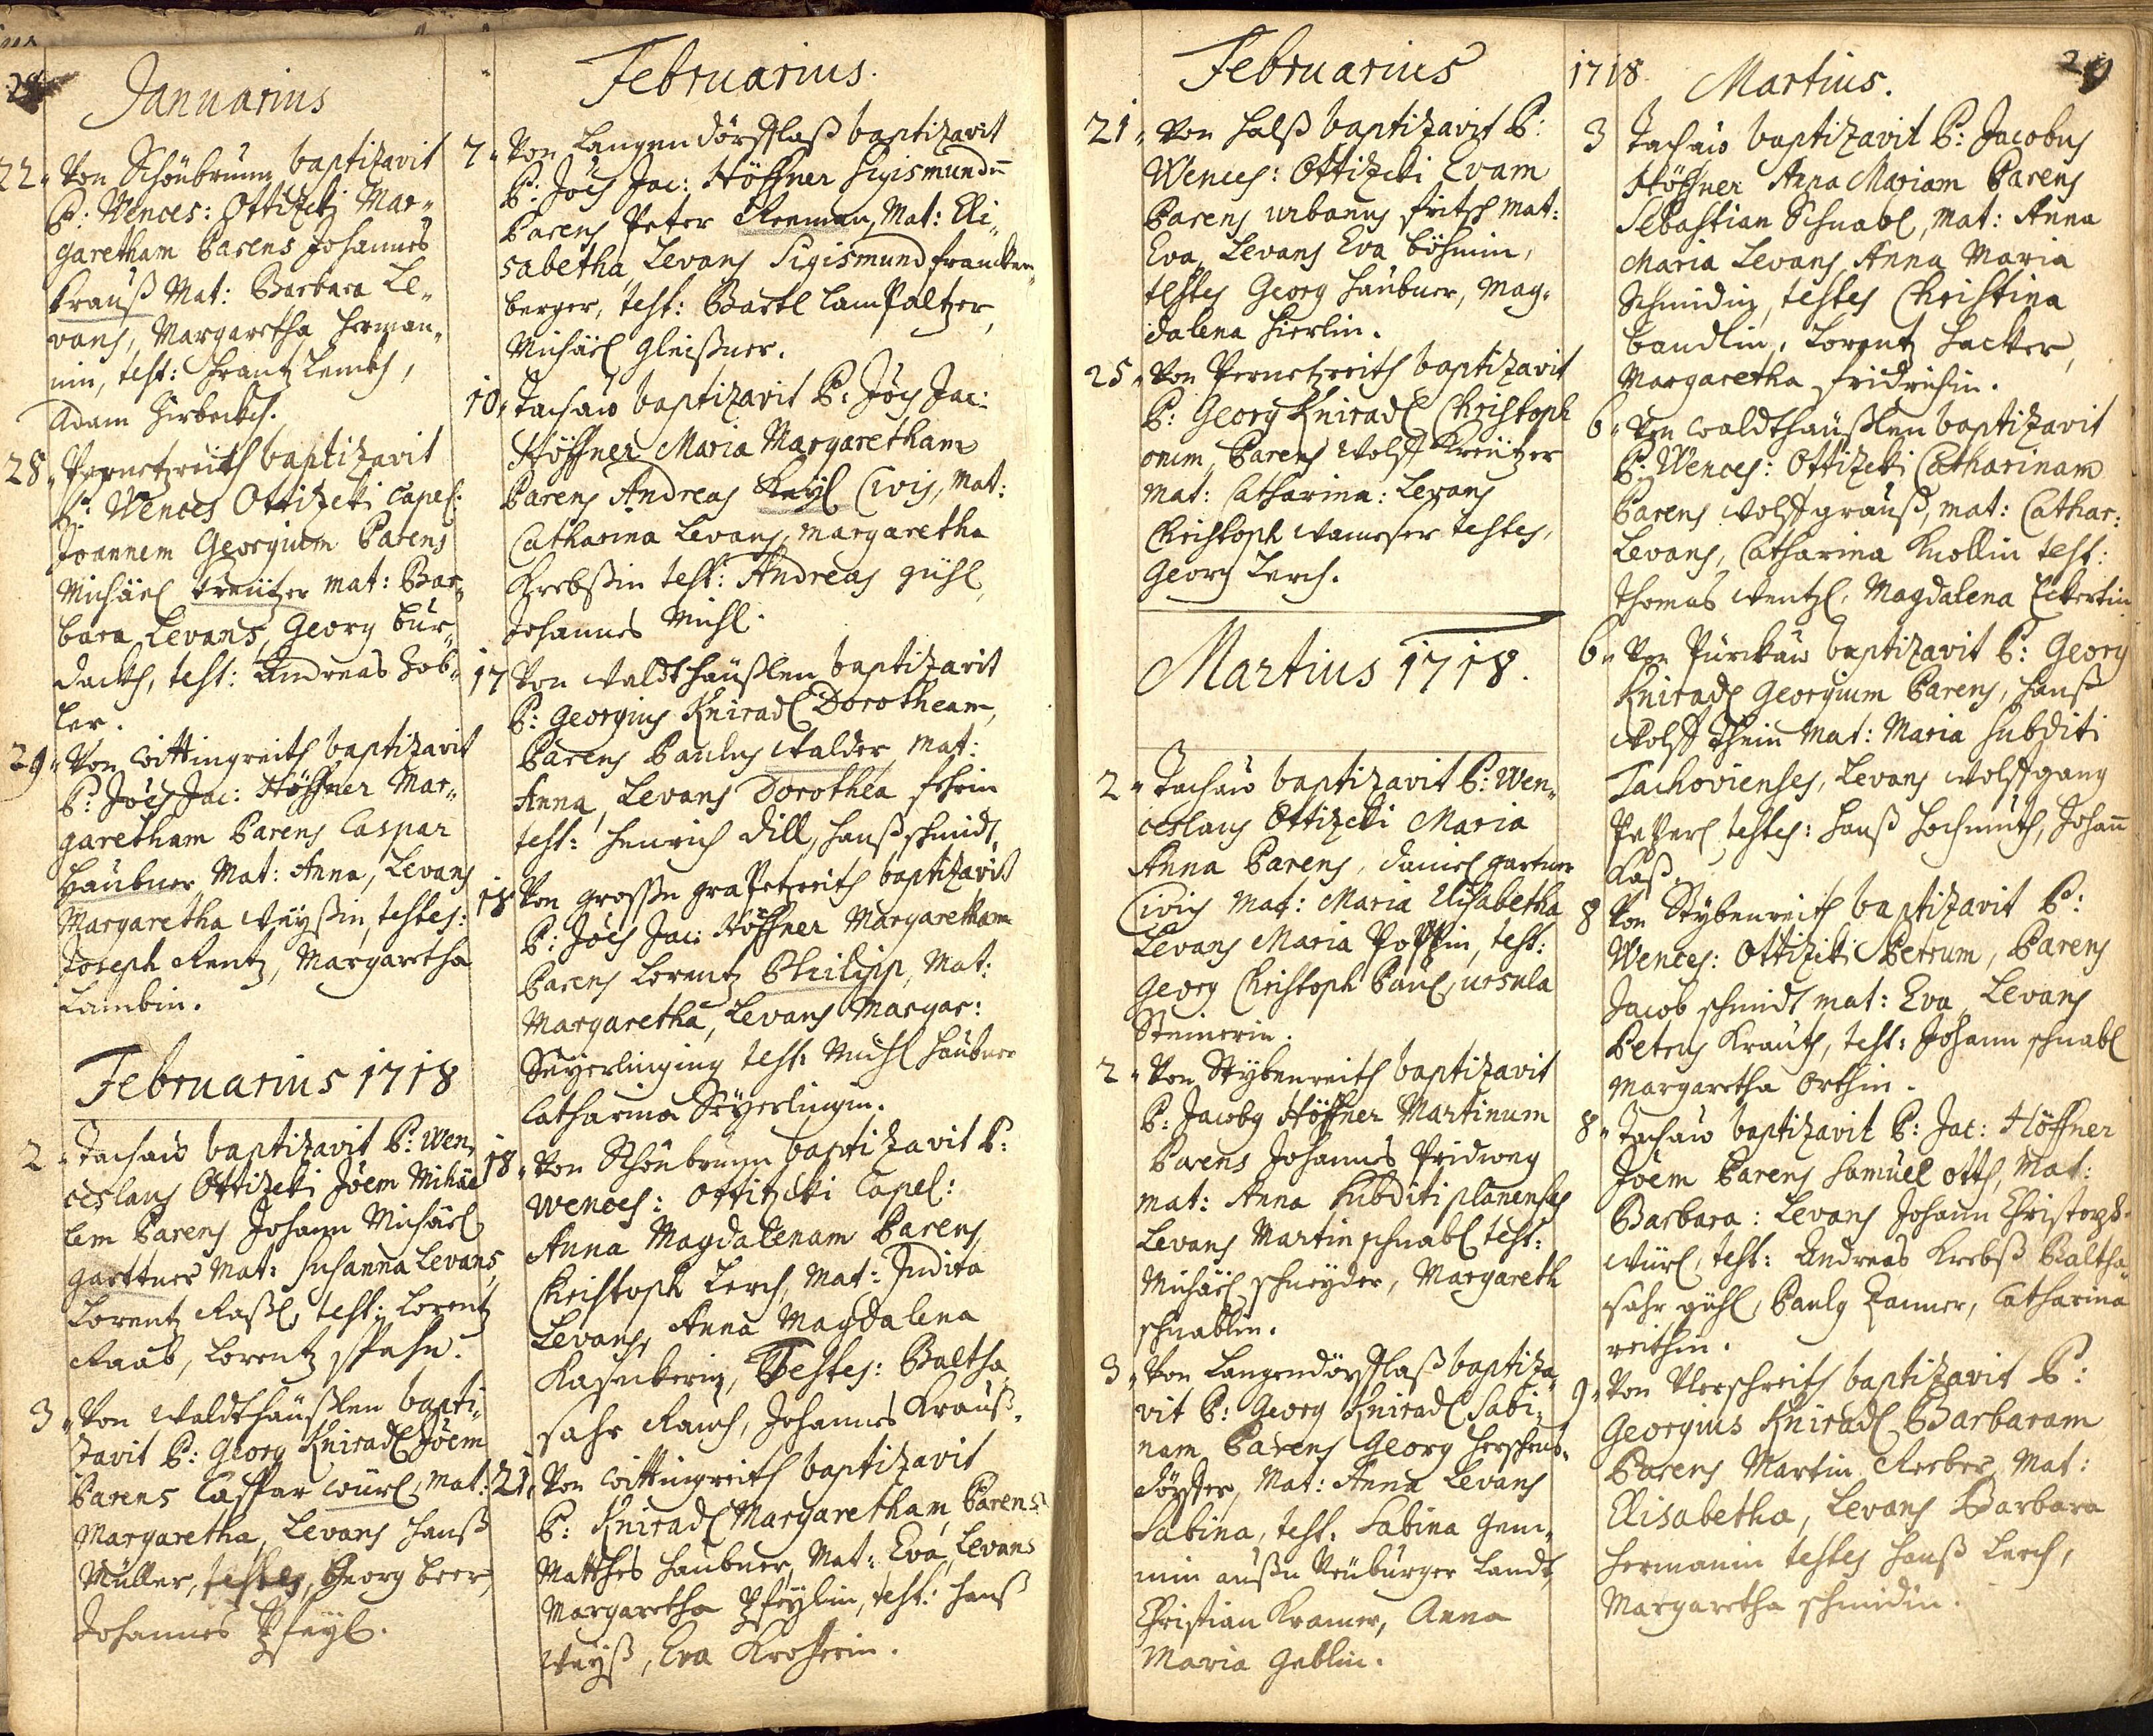 28
Januarius
22 Von Schönbrunn baptizavit
P: Wences: Ottizcki Mar„
garetham Parens Johannes
Krauß Mat: Barbara Le„
vans, Margaretha Herman„
nin, test: Frantz Lench,
Adam
28 Pernetzreith baptizavit
P: Wences Ottizcki Capel:
Joannem Georgium Parens
Michäel Kreützer mat: Bar„
bara Levans, Georg Bur„
dach, test: Andreas Zob„
ler.
29 Von Wittingreith baptizavit
P: Joes Jac: Höffner Mar„
garetham Parens Caspar
Haubner Mat: Anna, Levans
Margaretha Weyßin, testes:
Joseph Rentz, Margaretha
Lambin.
Februarius 1718
2 Tachau baptizavit P: Wen„
ceslaus Ottizcki Joem Michäe
lem Parens Johann Michäel
Garttner Mat: Susanna Levans,
Lorentz Raßl, test: Lorentz
Raab, Lorentz Spahn.
3 Von Waldthäußlen bapti„
zavit P: Georg Kniradl Joem
Parens Caspar Würl, Mat:
Margaretha, Levans Hanß
Müller, testes, Georg Beer,
Johannes Pfeyl.
Februarius.
7 Von Langendörfflaß baptizavit
P: Joes Jac: Höffner Sigismundū
Parens Peter Mat: Eli„
sabetha, Levans Sigismund Francken„
berger, test: Bartl Lampaltzer,
Michäel Gleißner.
10 Tachau baptizavit P: Joes Jac:
Höffner Maria Margaretham
Parens Andreas Keyl Civis, Mat:
Catharina Levans, Margaretha
Krebßin test: Andreas Gühl,
Johannes Michl.
17 Von Waldthäußlen baptizavit
P: Georgius Kniradl Dorotheam,
Parens Paulus Walder, Mat:
Anna, Levans Dorothea
test: Henrich Dill, Hanß Schmidt.
18 Von Großen Grapetzreith baptizavit
P: Joes Jac: Höffner Margaretham
Parens Lorentz Philipp, Mat:
Margaretha, Levans Margar:
Seyerlinging test: Michl Haubner
Catharina Seyerlingin.
18 Von Schönbrunn baptizavit P:
Wences: Ottitzcki Capel:
Anna Magdalenam Parens
Christoph Lerch, Mat: Judita
Levans, Anna Magdalena
Testes: Baltha
sahr Rauch, Johannes Krauß.
21 Von Wittingreith baptizavit
P: Kniradl Margaretham, Parens
Matthes Haubner, Mat: Eva, Levans
Margaretha Pfeylin, test: Hanß
Weyß, Eva
Februarius
21 Von Halß baptizavit P:
Wences: Ottizcki Evam
Parens Urbanus Fritsch Mat:
Eva, Levans Eva Böhmin,
testes Georg Haubner, Mag„
dalena Hierlin.
25 Von Pernetzreith baptizavit
P: Georg Kniradl Christoph
orum, Parens Wolff Kreützer
Mat: Catharina: Levans
Christoph Wameser testes,
Georg Lerch.
Martius 1718.
2 Tachau baptizavit P: Wen„
ceslaus Ottizcki Maria
Anna Parens, Daniel Gartner
Civis Mat: Maria Elisabetha
Levans Maria Poppin, test:
Georg Christoph Paul, Ursula
Steinerin.
2 Von Stybenreith baptizavit
P: Jacobg Höffner Martinum
Parens Johannes Pridweg
Mat: Anna Subditi planenses
Levans Martin Schnabl test:
Michäel Schneyder, Margareth
Schnablin.
3 Von Langendörfflaß baptiza„
vit P: Georg Kniradl Sabi„
nam Parens Georg
Mat: Anna Levans
Sabina, test: Sabina Gem„
min außn Neüburger Landt,
Christian Kramer, Anna
Maria Geblin.
1718 Martius. 29
3 Tachau baptizavit P: Jacobus
Höffner Anna Mariam Parens
Sebastian Schnabl, Mat: Anna
Maria Levans, Anna Maria
Schmidin, testes Christina
Bandlin, Lorentz Hacker,
Margaretha Fridrichin.
6 Von Waldthäußlen baptizavit
P: Wences: Ottizcki Catharinam
Parens Wolff Grauß, Mat: Cathar:
Levans, Catharina Knollin test:
Thomas Wentzl, Magdalena Eckertin
6 Von Pürckau baptizavit P: Georg
Kniradl Georgium Parens, Hanß
Wolff Thein Mat: Maria Subditi
Tachovienses, Levans Wolffgang
Peterl testes: Hanß Hochmuth, Johann
Kaß.
8 Von Stybenreith baptizavit P:
Wences: Ottizcki Petrum, Parens
Jacob Schmidt Mat: Eva Levans
Petrus Krauth, test: Johann Schnabl
Margaretha Orthin.
8 Tachau baptizavit P: Jac: Höffner
Joem Parens Samuel Otth, Mat:
Barbara: Levans Johann Christoph
Würl, test: Andreas Krebß Baltha„
sahr Gühl, Paulg Zanner, Catharina
Reithin.
9 Von Ulerschreith baptizavit P:
Georgius Kniradl Barbaram
Parens Martin Kerber, Mat:
Elisabetha, Levans Barbara
Hermanin testes Hanß Lerch,
Margaretha Schmidin.